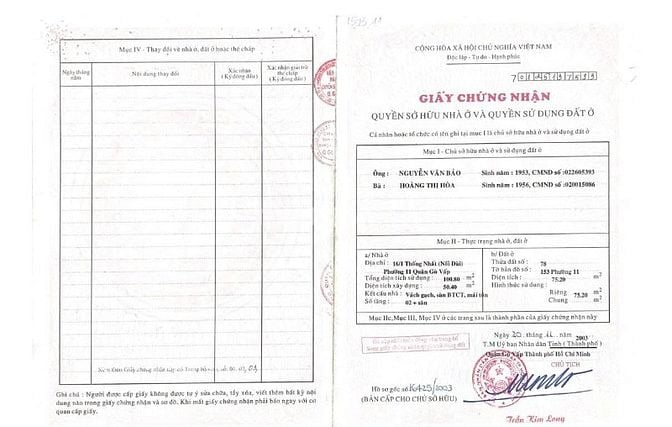 1595.11
Mục IV - Thay đổi về nhà ở, đất ở hoặc thế chấp
Ngày tháng năm
Nội dung thay đổi
Xác nhận (Ký đóng dấu)
Xác nhận giải trừ thế chấp (Ký đóng dấu)
Ghi chú : Người được cấp giấy không được tự ý sửa chữa, tẩy xóa, viết thêm bất kỳ nội
dung nào trong giấy chứng nhận và sơ đồ. Khi mất giấy chứng nhận phải báo ngay với cơ
quan cấp giấy.
CỘNG HÒA XÃ HỘI CHỦ NGHĨA VIỆT NAM
Độc lập - Tự do - Hạnh phúc
GIẤY CHỨNG NHẬN
QUYỀN SỞ HỮU NHÀ Ở VÀ QUYỀN SỬ DỤNG ĐẤT Ở
Cá nhân hoặc tổ chức có tên ghi tại mục I là chủ sở hữu nhà ở và sử dụng đất ở
Mục I - Chủ sở hữu nhà ở và sử dụng đất ở
Ông : NGUYỄN VĂN BẢO Sinh năm : 1953, CMND số :022605393
Bà : HOÀNG THỊ HÒA Sinh năm : 1956, CMND số :020015086
Mục II - Thực trạng nhà ở, đất ở
a/ Nhà ở
Địa chỉ : 16/I Thống Nhất (Nối Dài)
Phường 11 Quận Gò Vấp
Tổng diện tích sử dụng : 100.80 m2
Diện tích xây dựng : 50.40 m2
Kết cấu nhà : Vách gạch, sàn BTCT, mái tôn
Số tầng : 02 + sân
b/ Đất ở
Thửa đất số : 78
Tờ bản đồ số : 153 Phường 11
Diện tích : 75.20 m2
Hình thức sử dụng :
Riêng : 75.20 m2
Chung : m2
Mục IIc, Mục III, Mục IV ở các trang sau là thành phần của giấy chứng nhận này
Ngày 20 tháng 11 năm 2003
T.M Uỷ ban Nhân dân Tỉnh (Thành phố)
Quận Gò Vấp Thành phố Hồ Chí Minh
CHỦ TỊCH
Hồ sơ gốc số 16425/2003
(BẢN CẤP CHO CHỦ SỞ HỮU)
Trần Kim Long